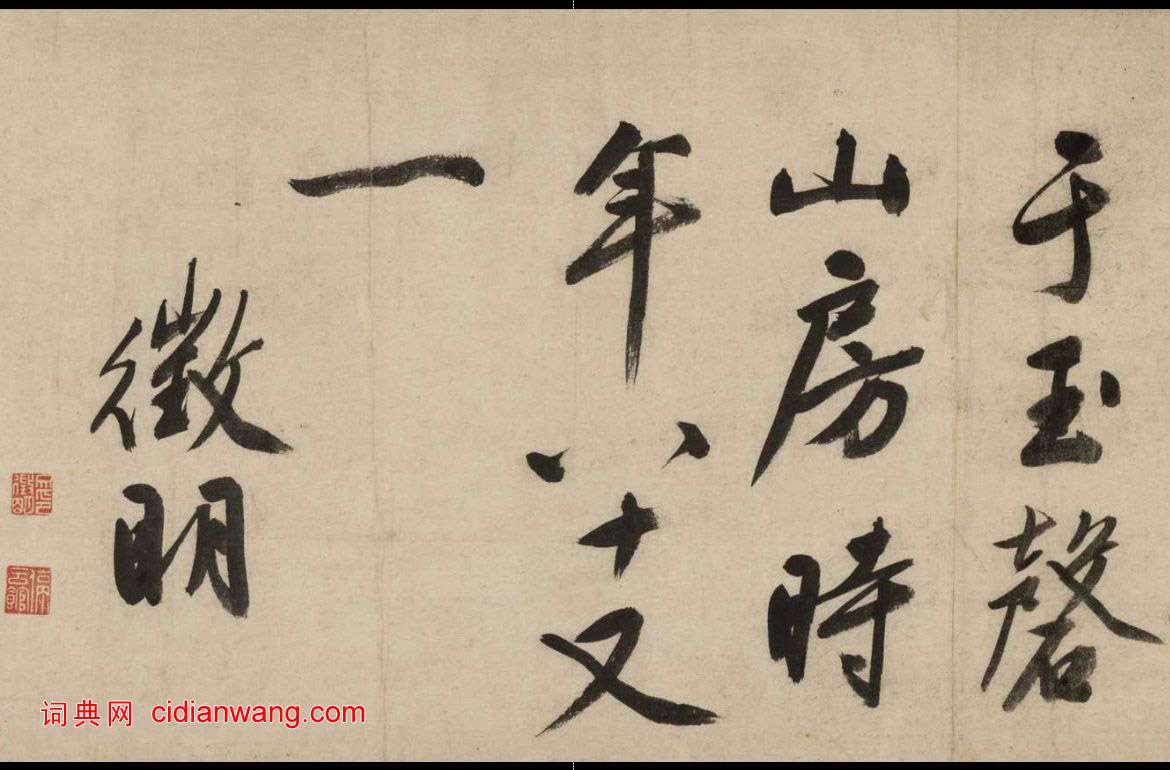 于玉磬
山房時
年八十又
一
徵明
词典网 cidianwang.com